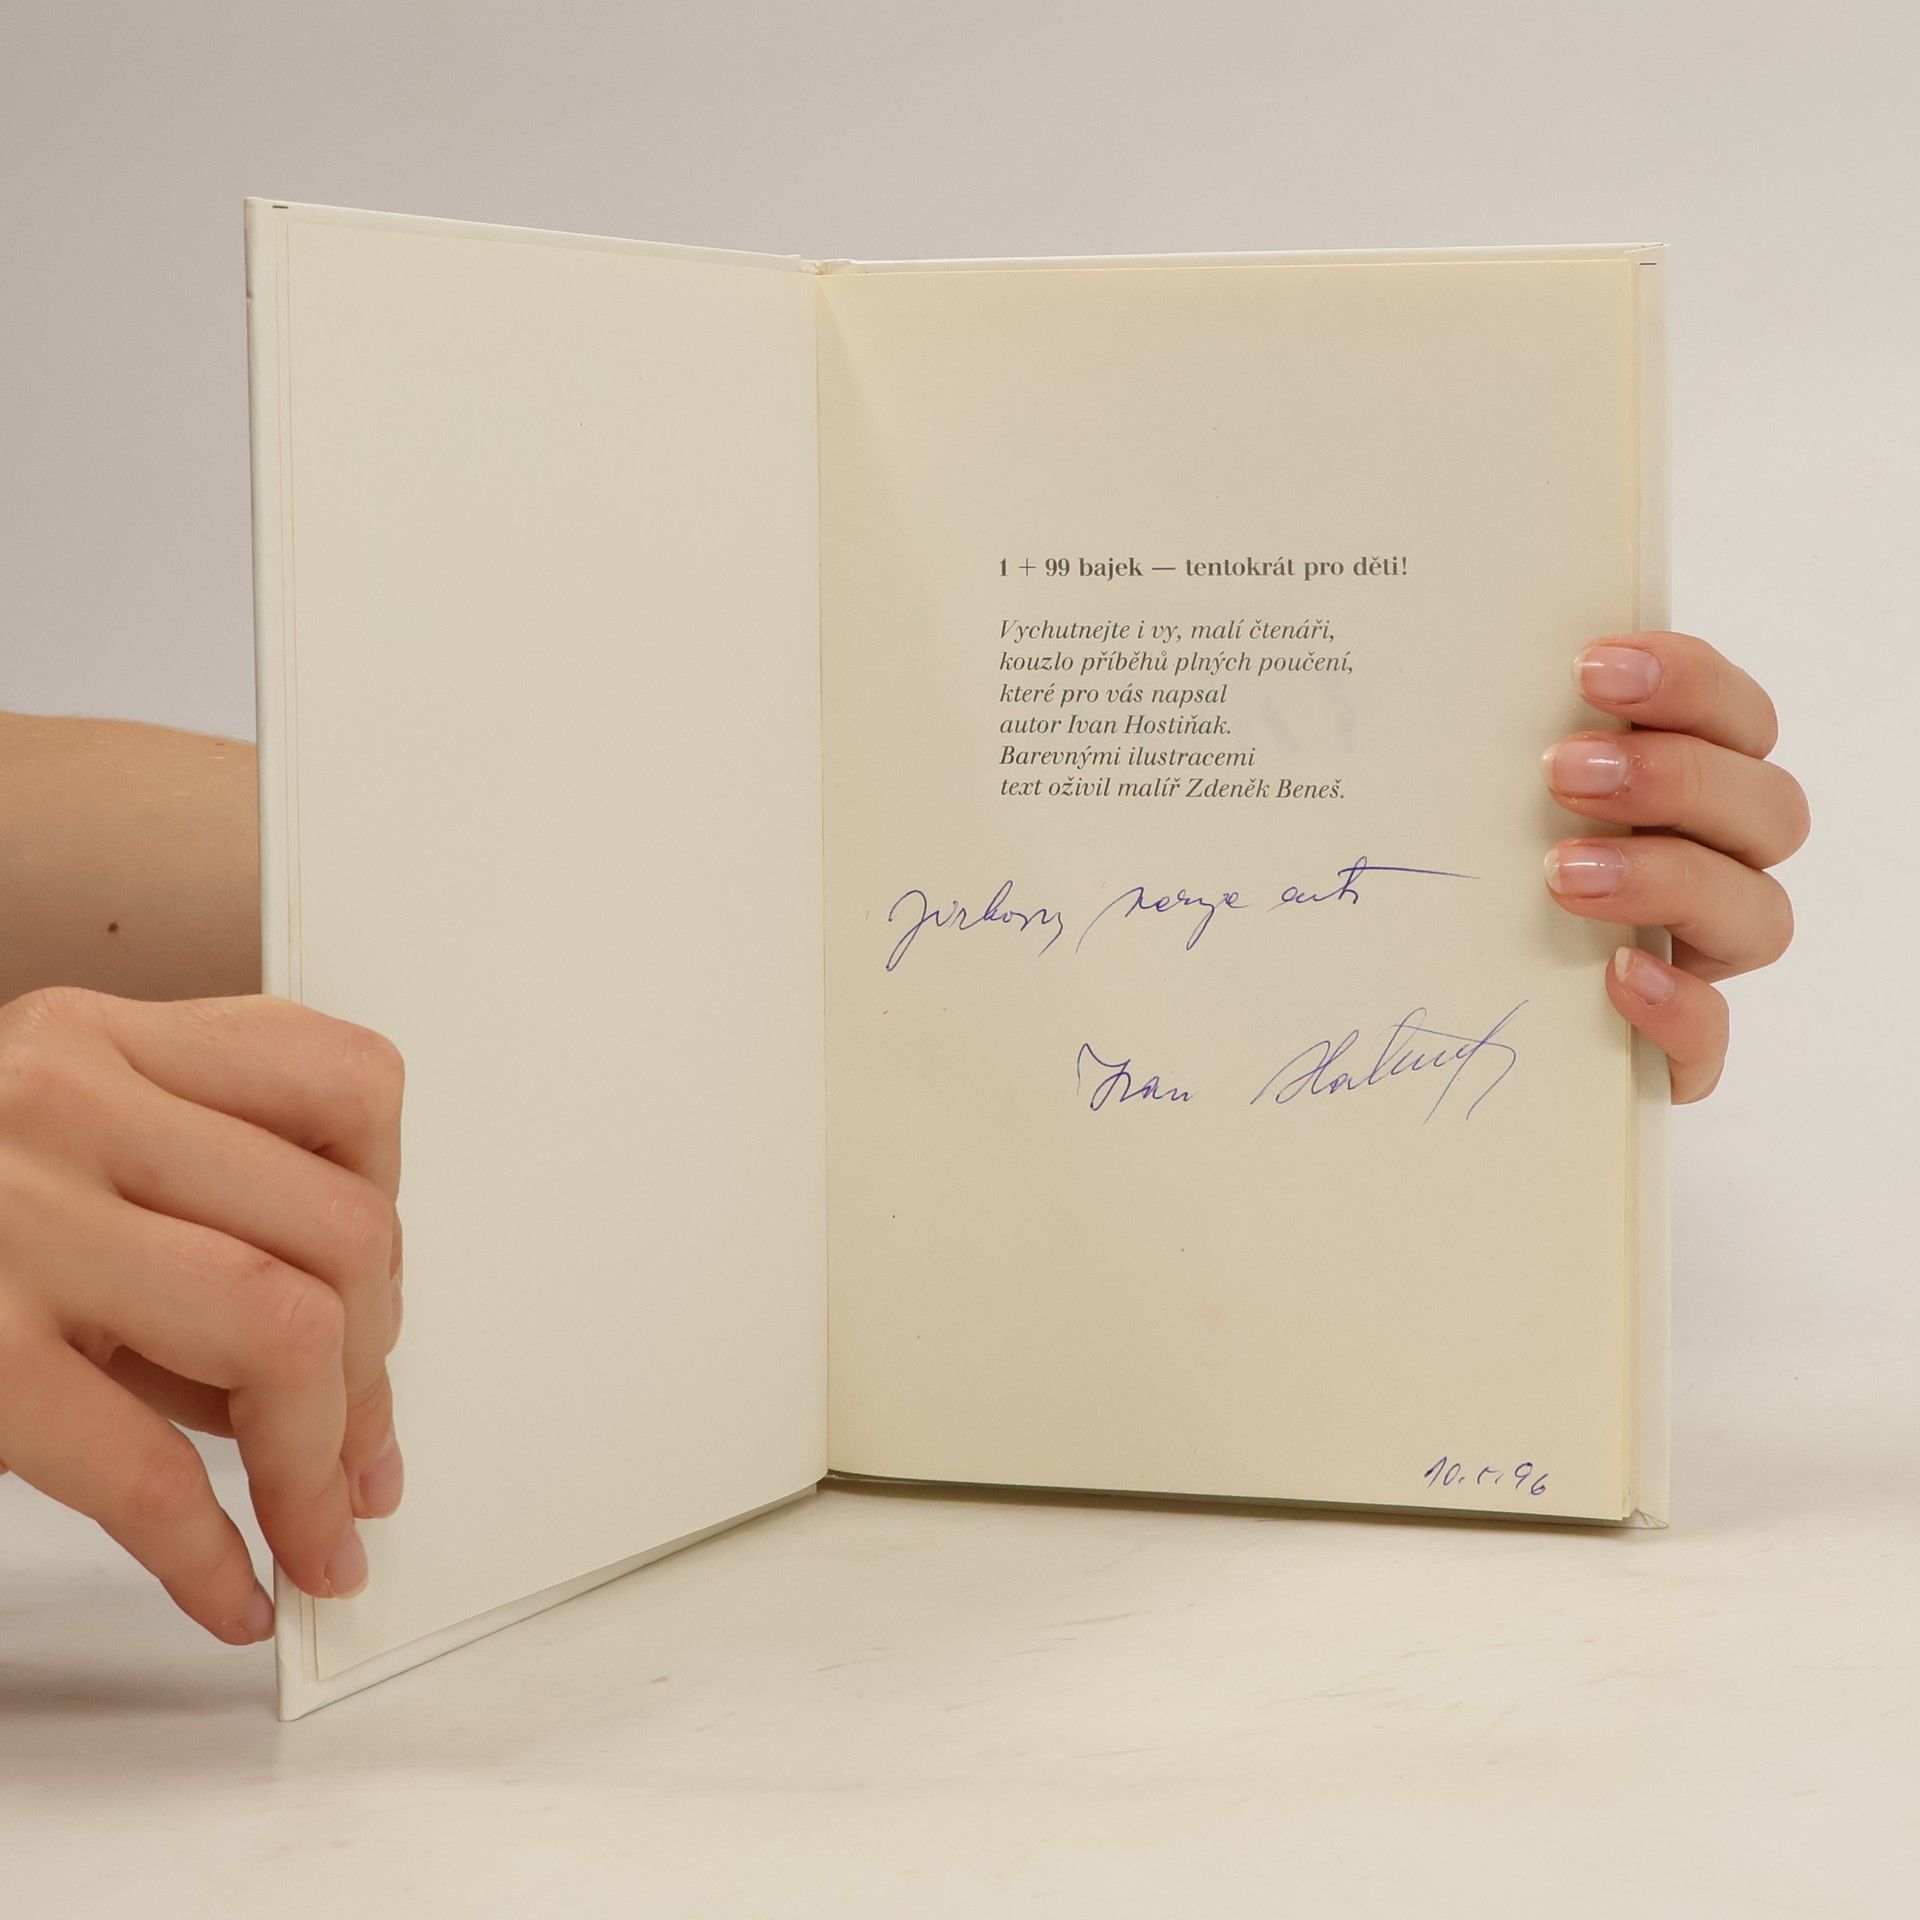 1 + 99 bajek — tentokrát pro děti!
Vychutnejte i vy, malí čtenáři,
kouzlo příběhů plných poučení,
které pro vás napsal
autor Ivan Hostiňak.
Barevnými ilustracemi
text oživil malíř Zdeněk Beneš.
Jirkovy
Ivan